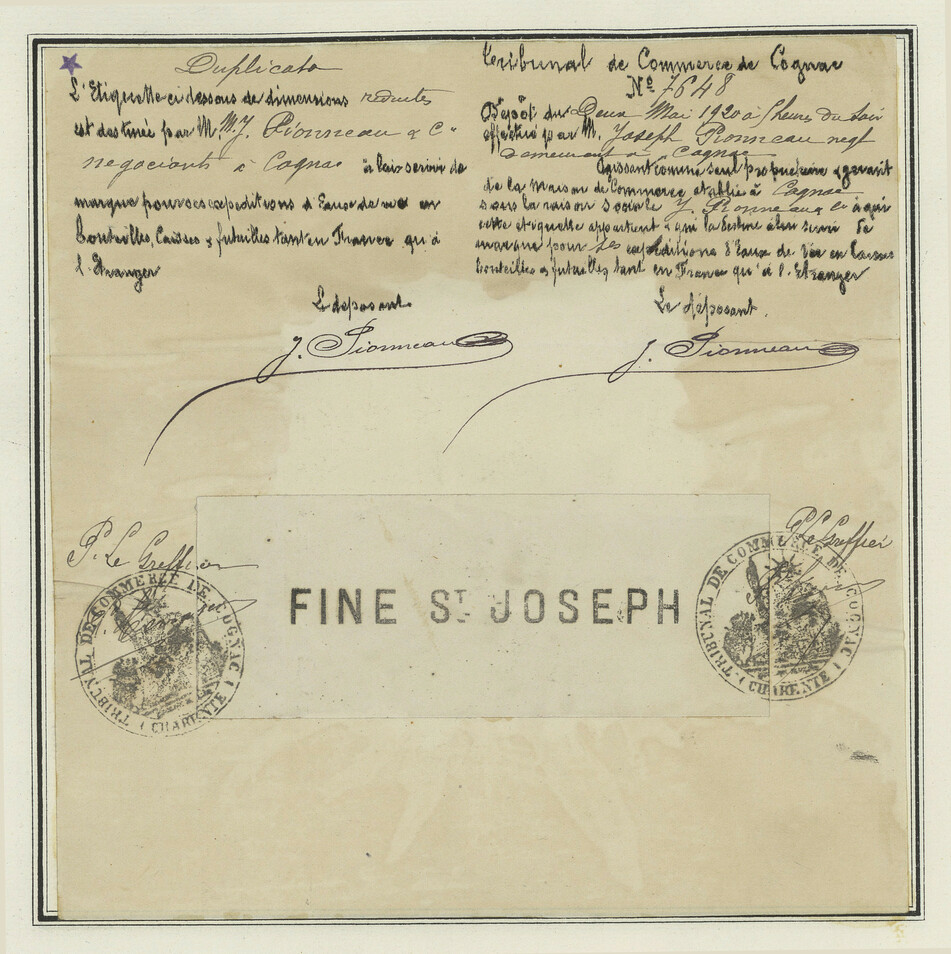 Duplicata
L'Etiquette ci dessous de dimensions réduites
est destinée par M.M. J. Pionneau & Cie
négociants à Cognac à leur servir de
marque pour ses expéditions d'Eaux de vie en
bouteilles, Caisses & futailles tant en France qu'à
l'Etranger
Le déposant
J. Pionneau
Tribunal de Commerce de Cognac
No 7648
Dépôt du Deux Mai 1920 à heures du soir
effectué par M. Joseph Pionneau negt
demeurant à Cognac
Agissant comme seul propriétaire & gérant
de la maison de Commerce établie à Cognac
sous la raison sociale J. Pionneau & Co à qui
cette étiquette appartient & qui la destine à leur servir de
marque pour ses expéditions d'Eaux de Vie en Caisses
bouteilles & futailles tant en France qu'à l'Etranger
Le déposant.
J. Pionneau
P. Le Greffier
P. Le Greffier
FINE ST JOSEPH
TRIBUNAL DE COMMERCE DE COGNAC
(CHARENTE)
TRIBUNAL DE COMMERCE DE COGNAC
(CHARENTE)